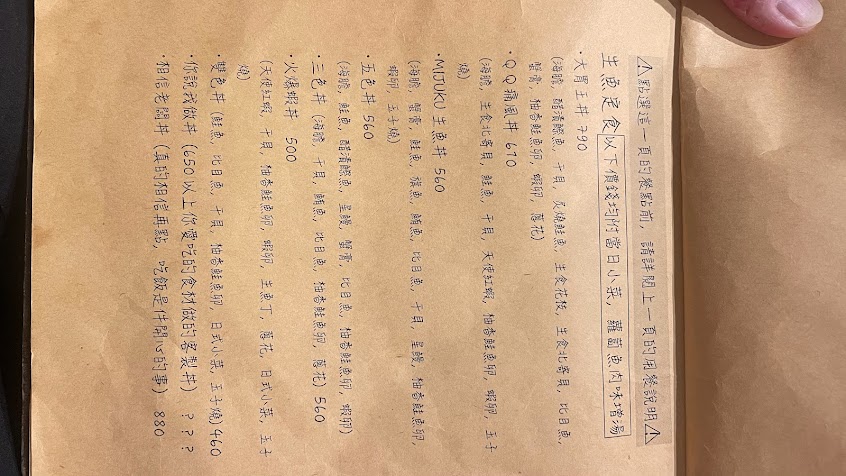 ⚠點選這一頁的餐點前，請詳閱上一頁的用餐說明⚠
生魚定食 以下價錢均附當日小菜，蘿蔔魚肉味增湯
・大胃王丼 790
(海膽，醋漬鯖魚，干貝，炙燒鮭魚，生食花枝，生食北寄貝，比目魚，
蟹膏，柚香鮭魚卵，蝦卵，蔥花)
・QQ痛風丼 670
(海膽，生食北寄貝，鮭魚，干貝，天使紅蝦，柚香鮭魚卵，蝦卵，玉子
燒)
・MIJUKU生魚丼 560
(海膽，蟹膏，鮭魚，旗魚，鮪魚，比目魚，干貝，星鰻，柚香鮭魚卵，
蝦卵，玉子燒)
・五色丼 560
(海膽，鮭魚，醋漬鯖魚，星鰻，蟹膏，比目魚，柚香鮭魚卵，蝦卵)
・三色丼 (海膽，干貝，鮪魚，比目魚，柚香鮭魚卵，蔥花) 560
・火爆蝦丼 500
(天使紅蝦，干貝，柚香鮭魚卵，蝦卵，生魚丁，蔥花，日式小菜，玉子
燒)
・雙色丼 (鮭魚，比目魚，干貝，柚香鮭魚卵，日式小菜，玉子燒) 460
・你說我做丼 (650以上你愛吃的食材做的客製丼) ？？？
・相信老闆丼 (真的相信再點，吃飯是件開心的事) 880